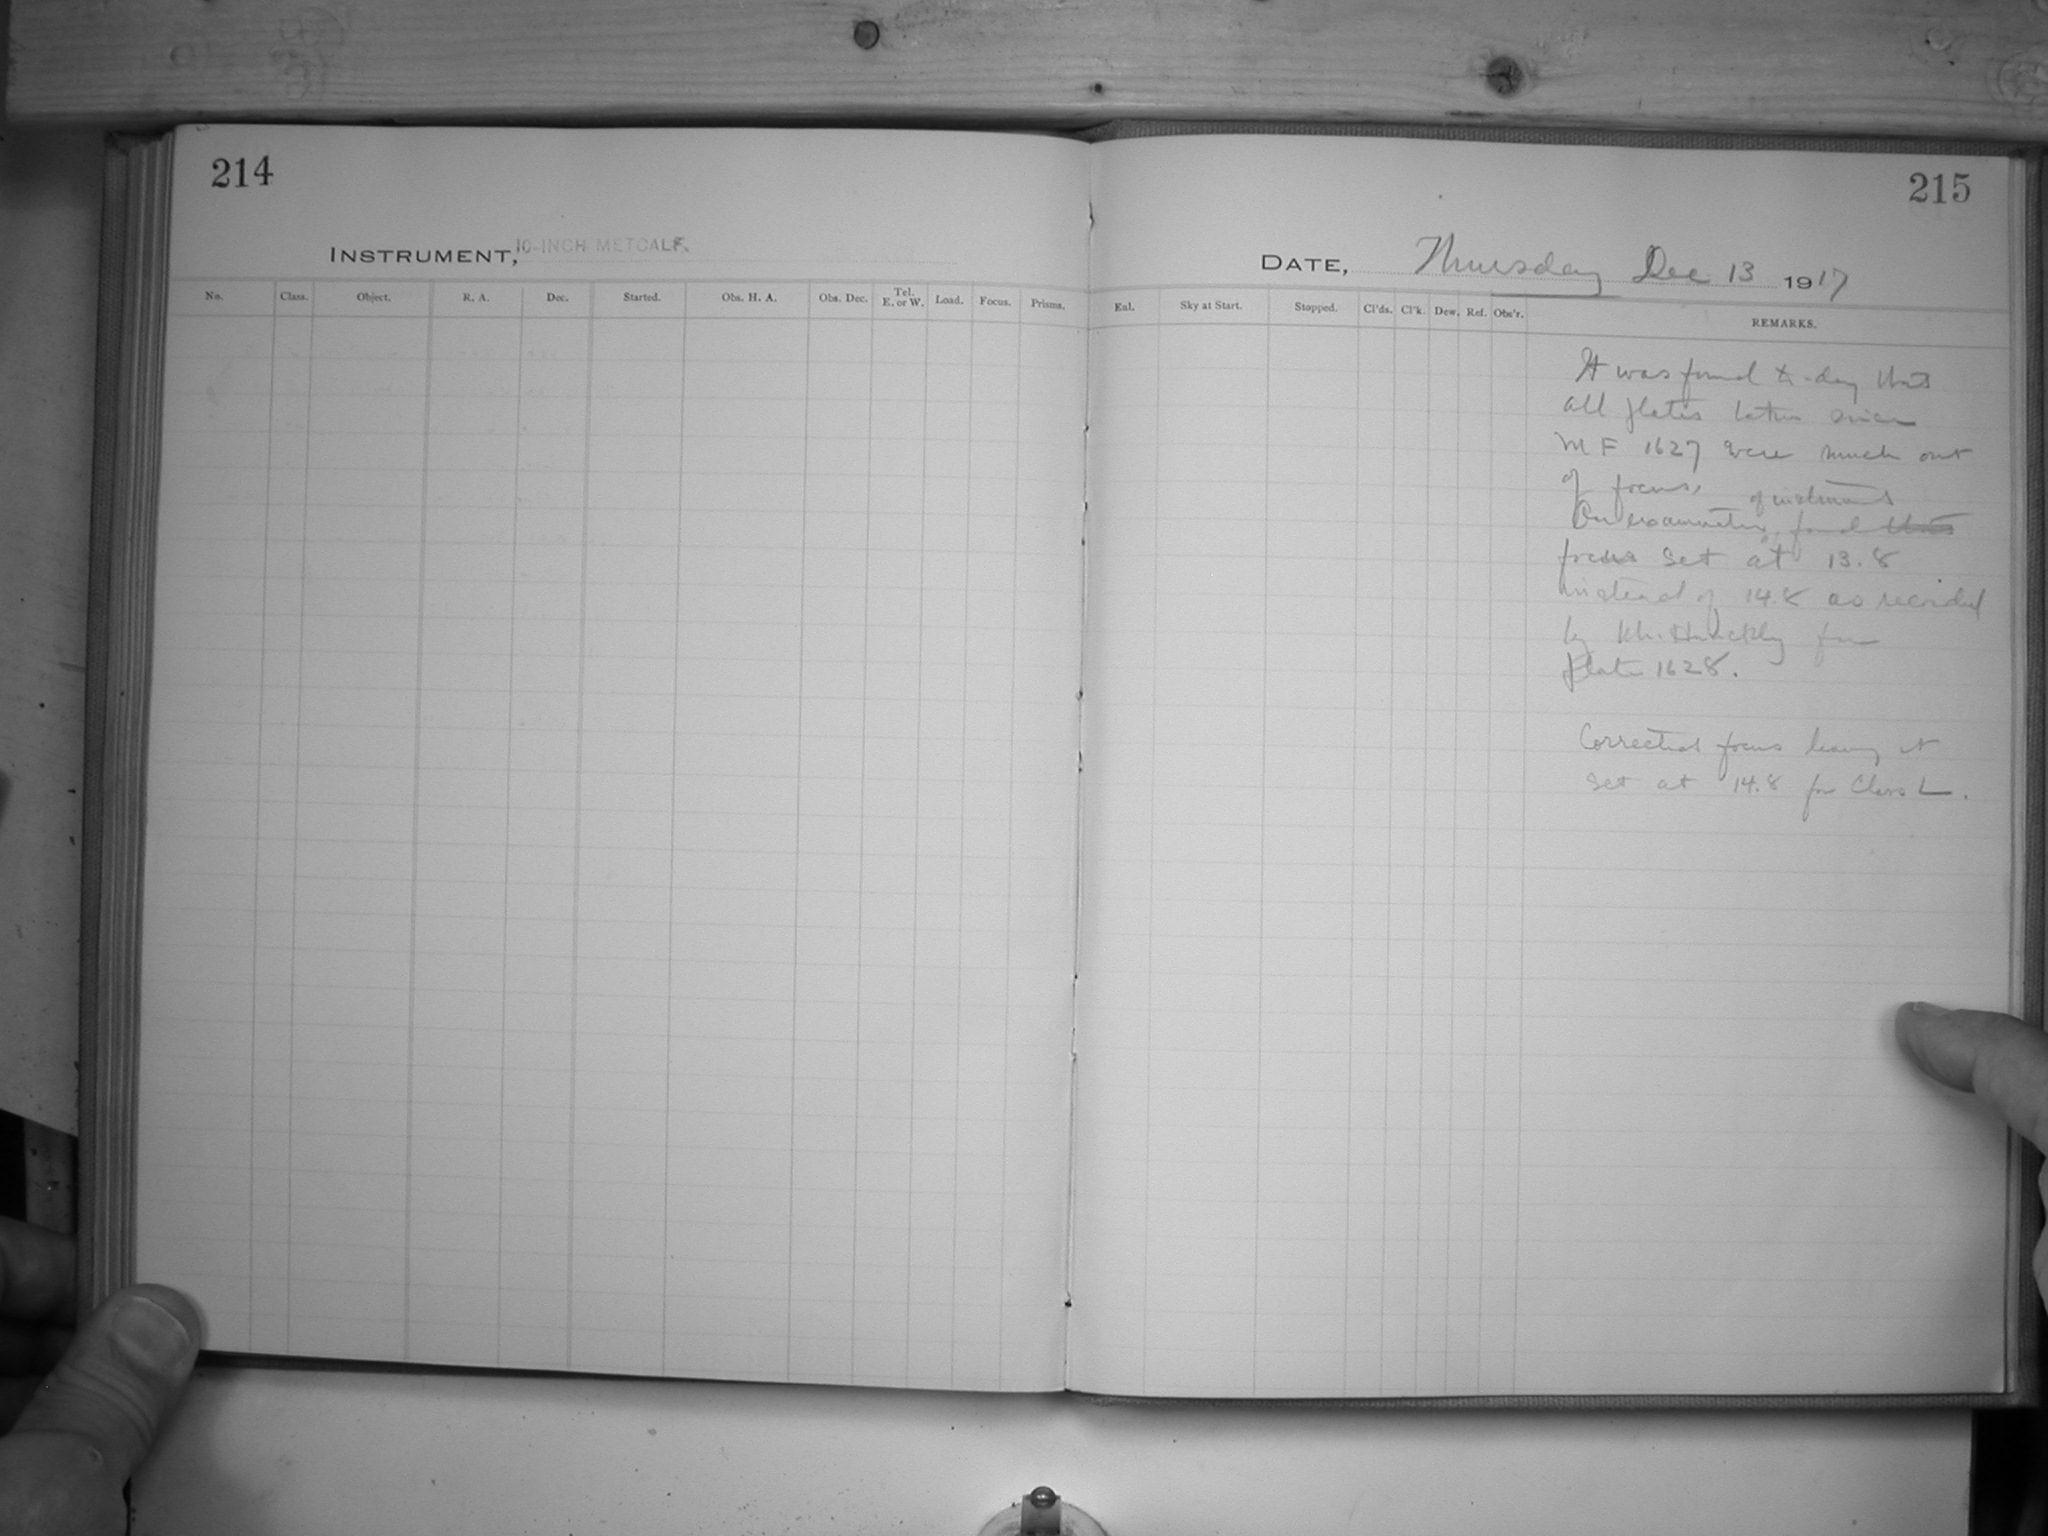 214
215
INSTRUMENT, 10-INCH METCALF.
DATE, Thursday Dec 13 1917
No. Class. Object. R. A. Dec. Started. Obs. H. A. Obs. Dec. Tel. E. or W. Load. Focus. Prisms.
Eml. Sky at Start. Stopped. Cl'ds. Cl'k. Dew. Ref. Obs'r. REMARKS.
It was found to-day that
all plates taken since
MF 1627 were much out
of focus.
On examination of instrument found that
focus set at 13.8
instead of 14.8 as recorded
by Mr. Hinckley for
plate 1628.
Corrected focus leaving it
set at 14.8 for Class L.